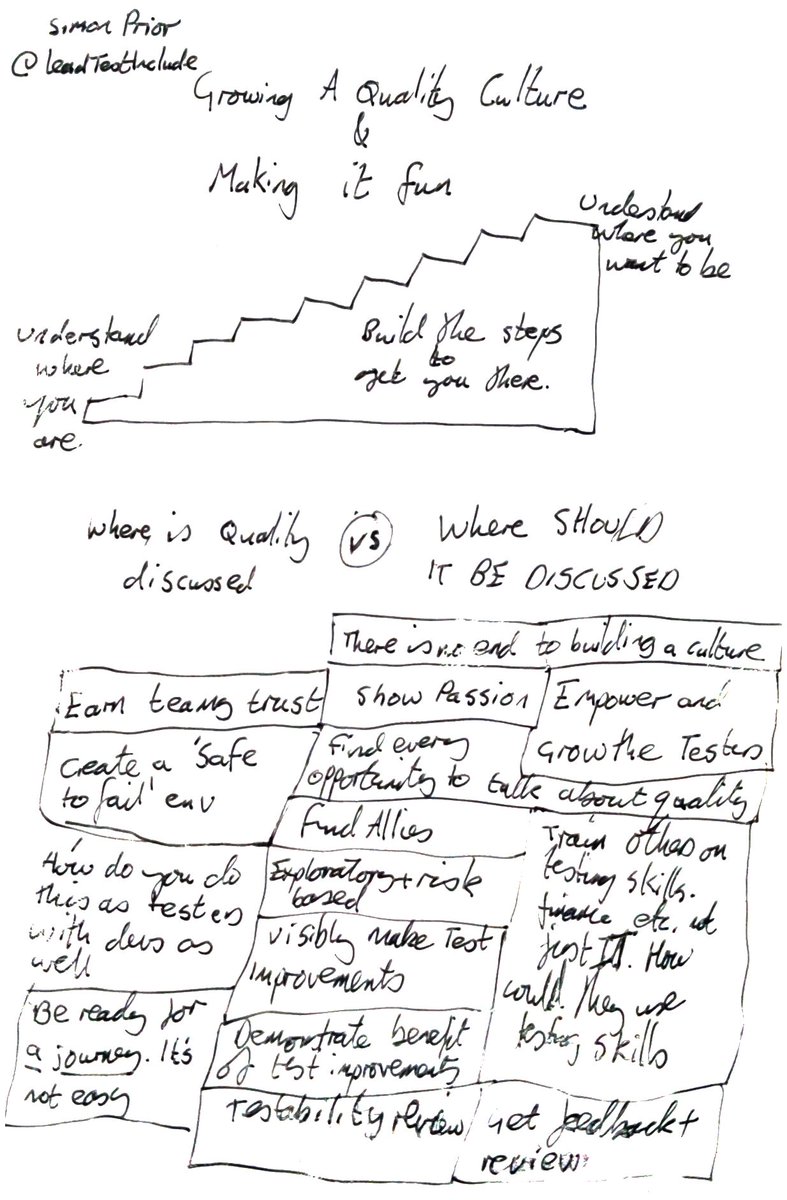 Simon Prior
@leadTestInclude
Growing A Quality Culture
&
Making it fun
Understand
where you
want to be
Understand
where
you
are.
Build the steps
to
get you there.
Where is Quality
discussed
VS
Where SHOULD
IT BE DISCUSSED
There is no end to building a culture
Earn teams trust
Show Passion
Empower and
Grow the Testers
Create a 'Safe
to fail' env
Find every
opportunity to talk about quality
Find Allies
How do you do
this as testers
with devs as
well
Exploratory + risk
based
Train others on
testing skills.
finance etc. not
just IT. How
could they use
testing skills
Visibly make Test
Improvements
Be ready for
a journey. It's
not easy
Demonstrate benefit
of test improvements
Testability review
Get feedback +
review